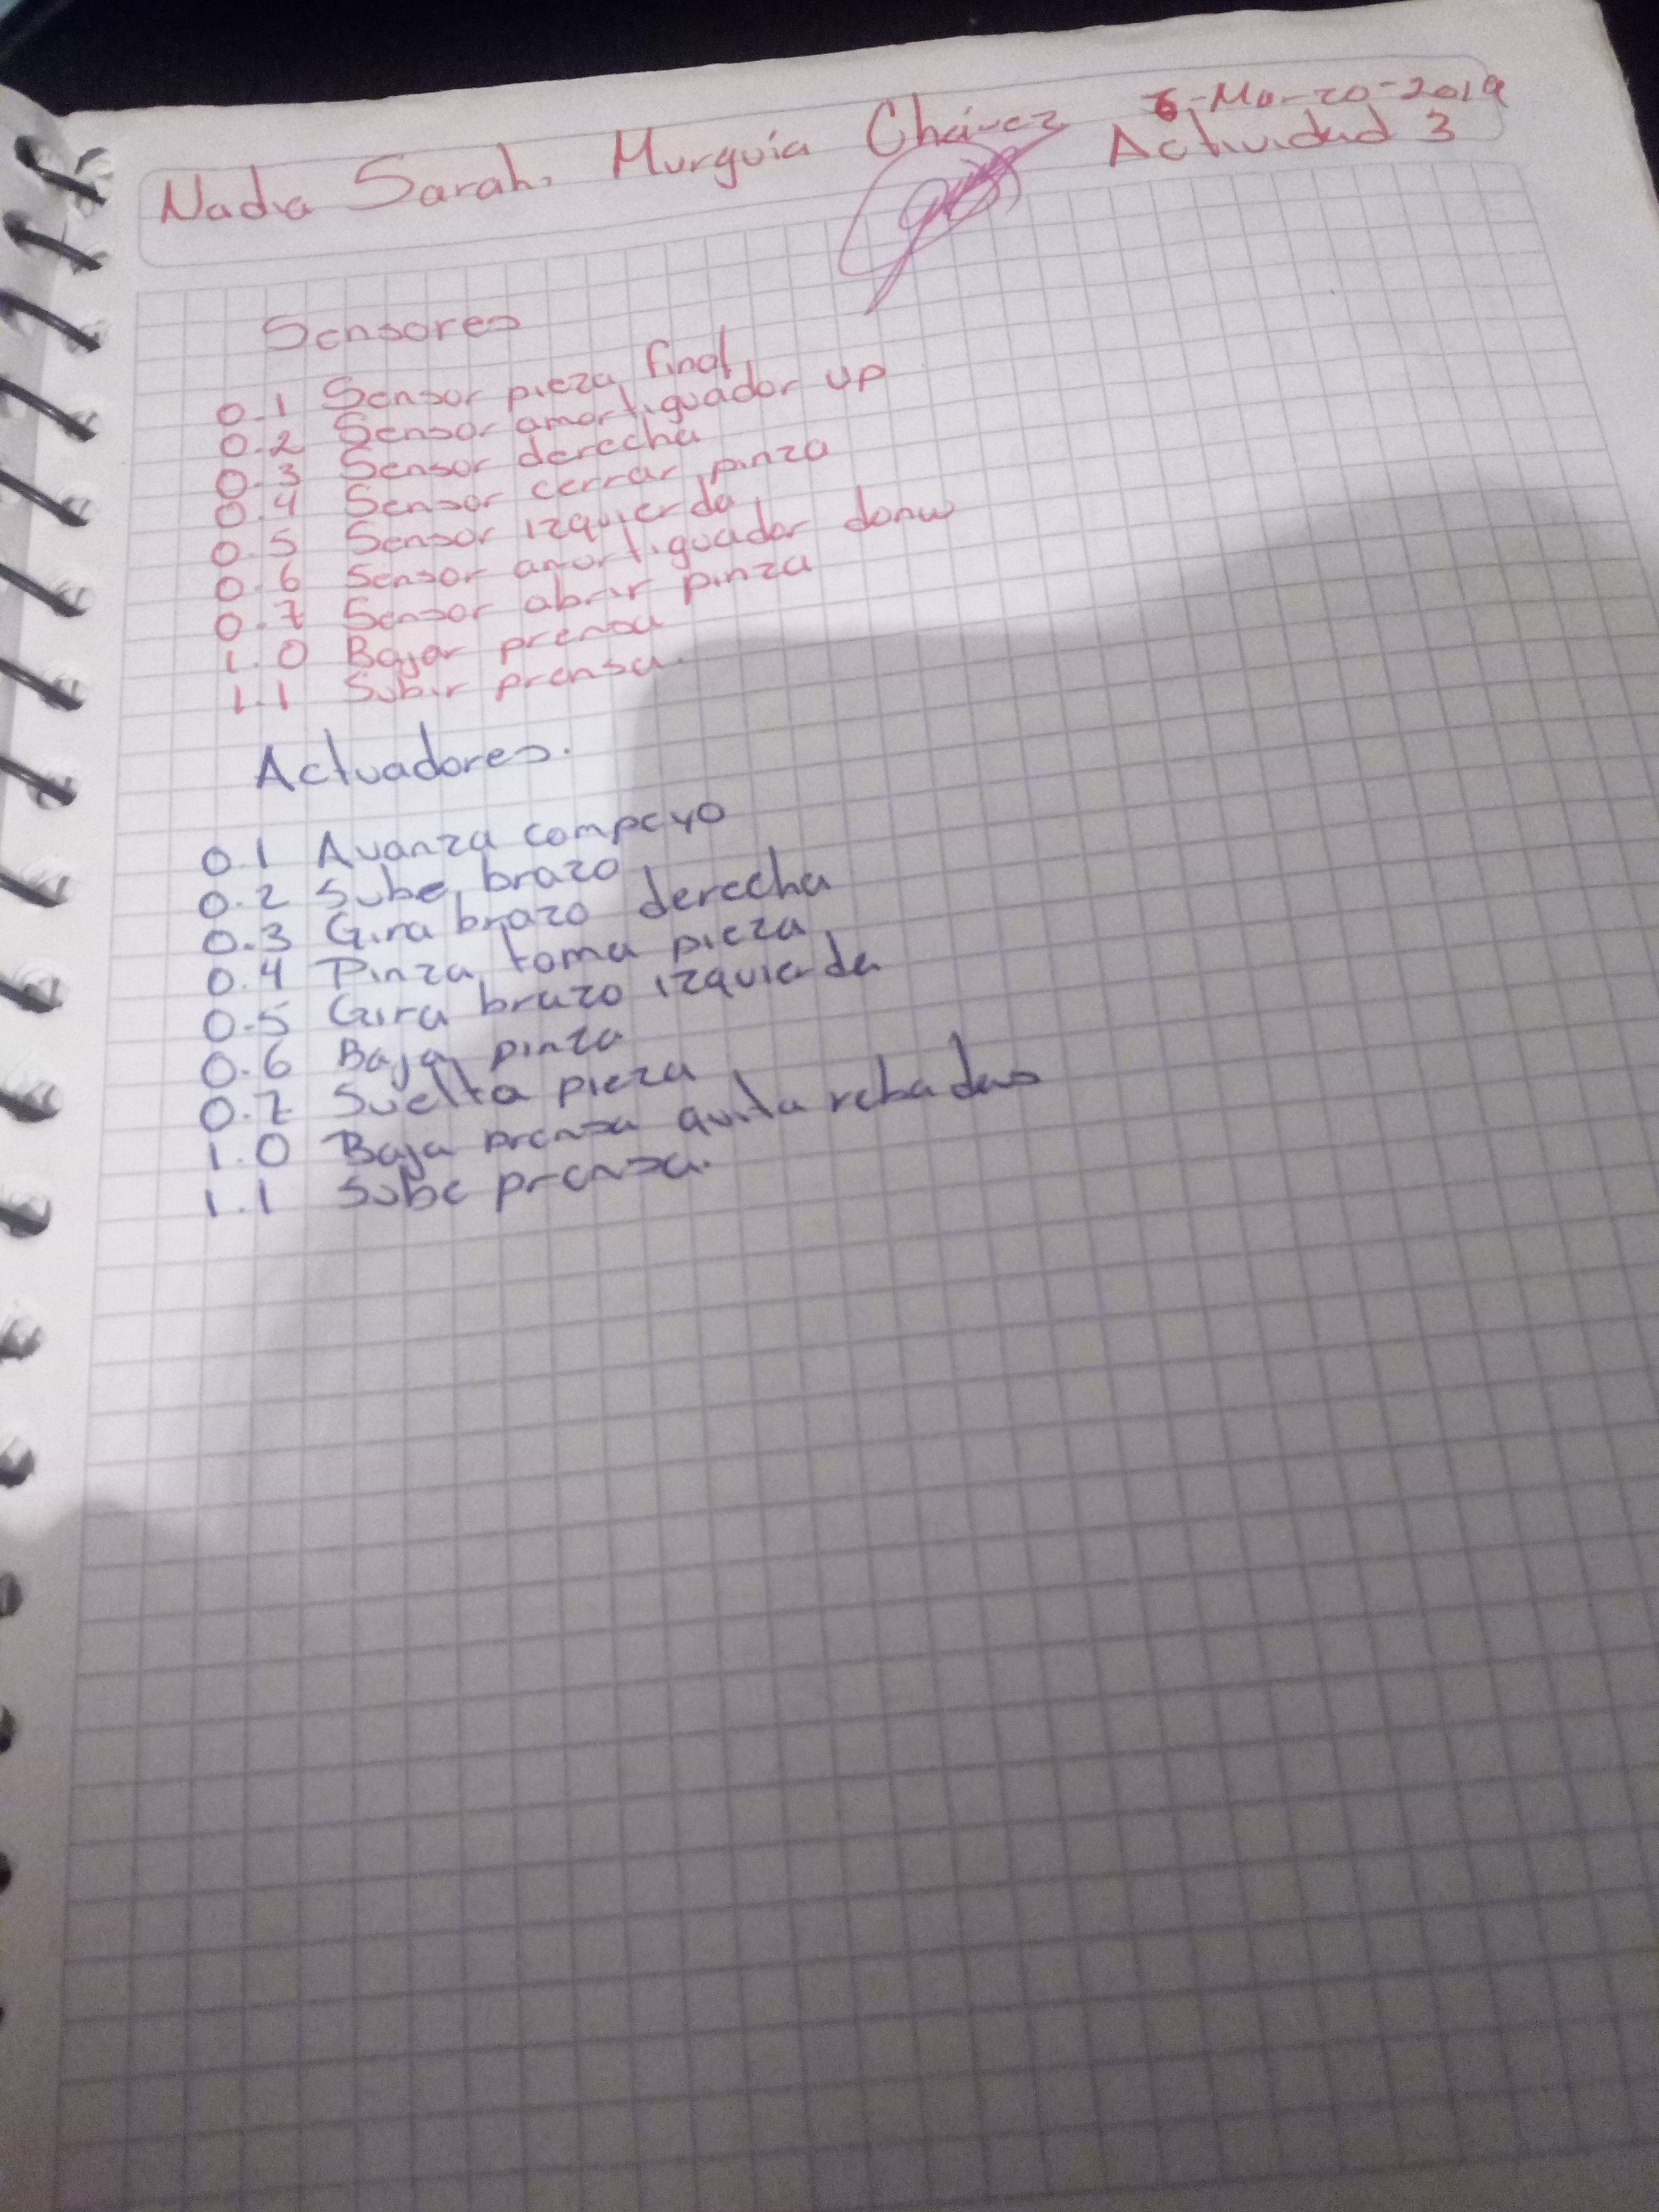 Nadia Sarah Murguía Chávez
6-Marzo-2019
Actividad 3
Sensores
0.1 Sensor pieza final
0.2 Sensor amortiguador up
0.3 Sensor derecha
0.4 Sensor cerrar pinza
0.5 Sensor izquierda
0.6 Sensor amortiguador donw
0.7 Sensor abrir pinza
1.0 Bajar prensa
1.1 Subir prensa.
Actuadores.
0.1 Avanza
0.2 Sube brazo
0.3 Gira brazo derecha
0.4 Pinza toma pieza
0.5 Gira brazo izquierda
0.6 Baja pinza
0.7 Suelta pieza
1.0 Baja prensa quita rebadas
1.1 Sube prensa.